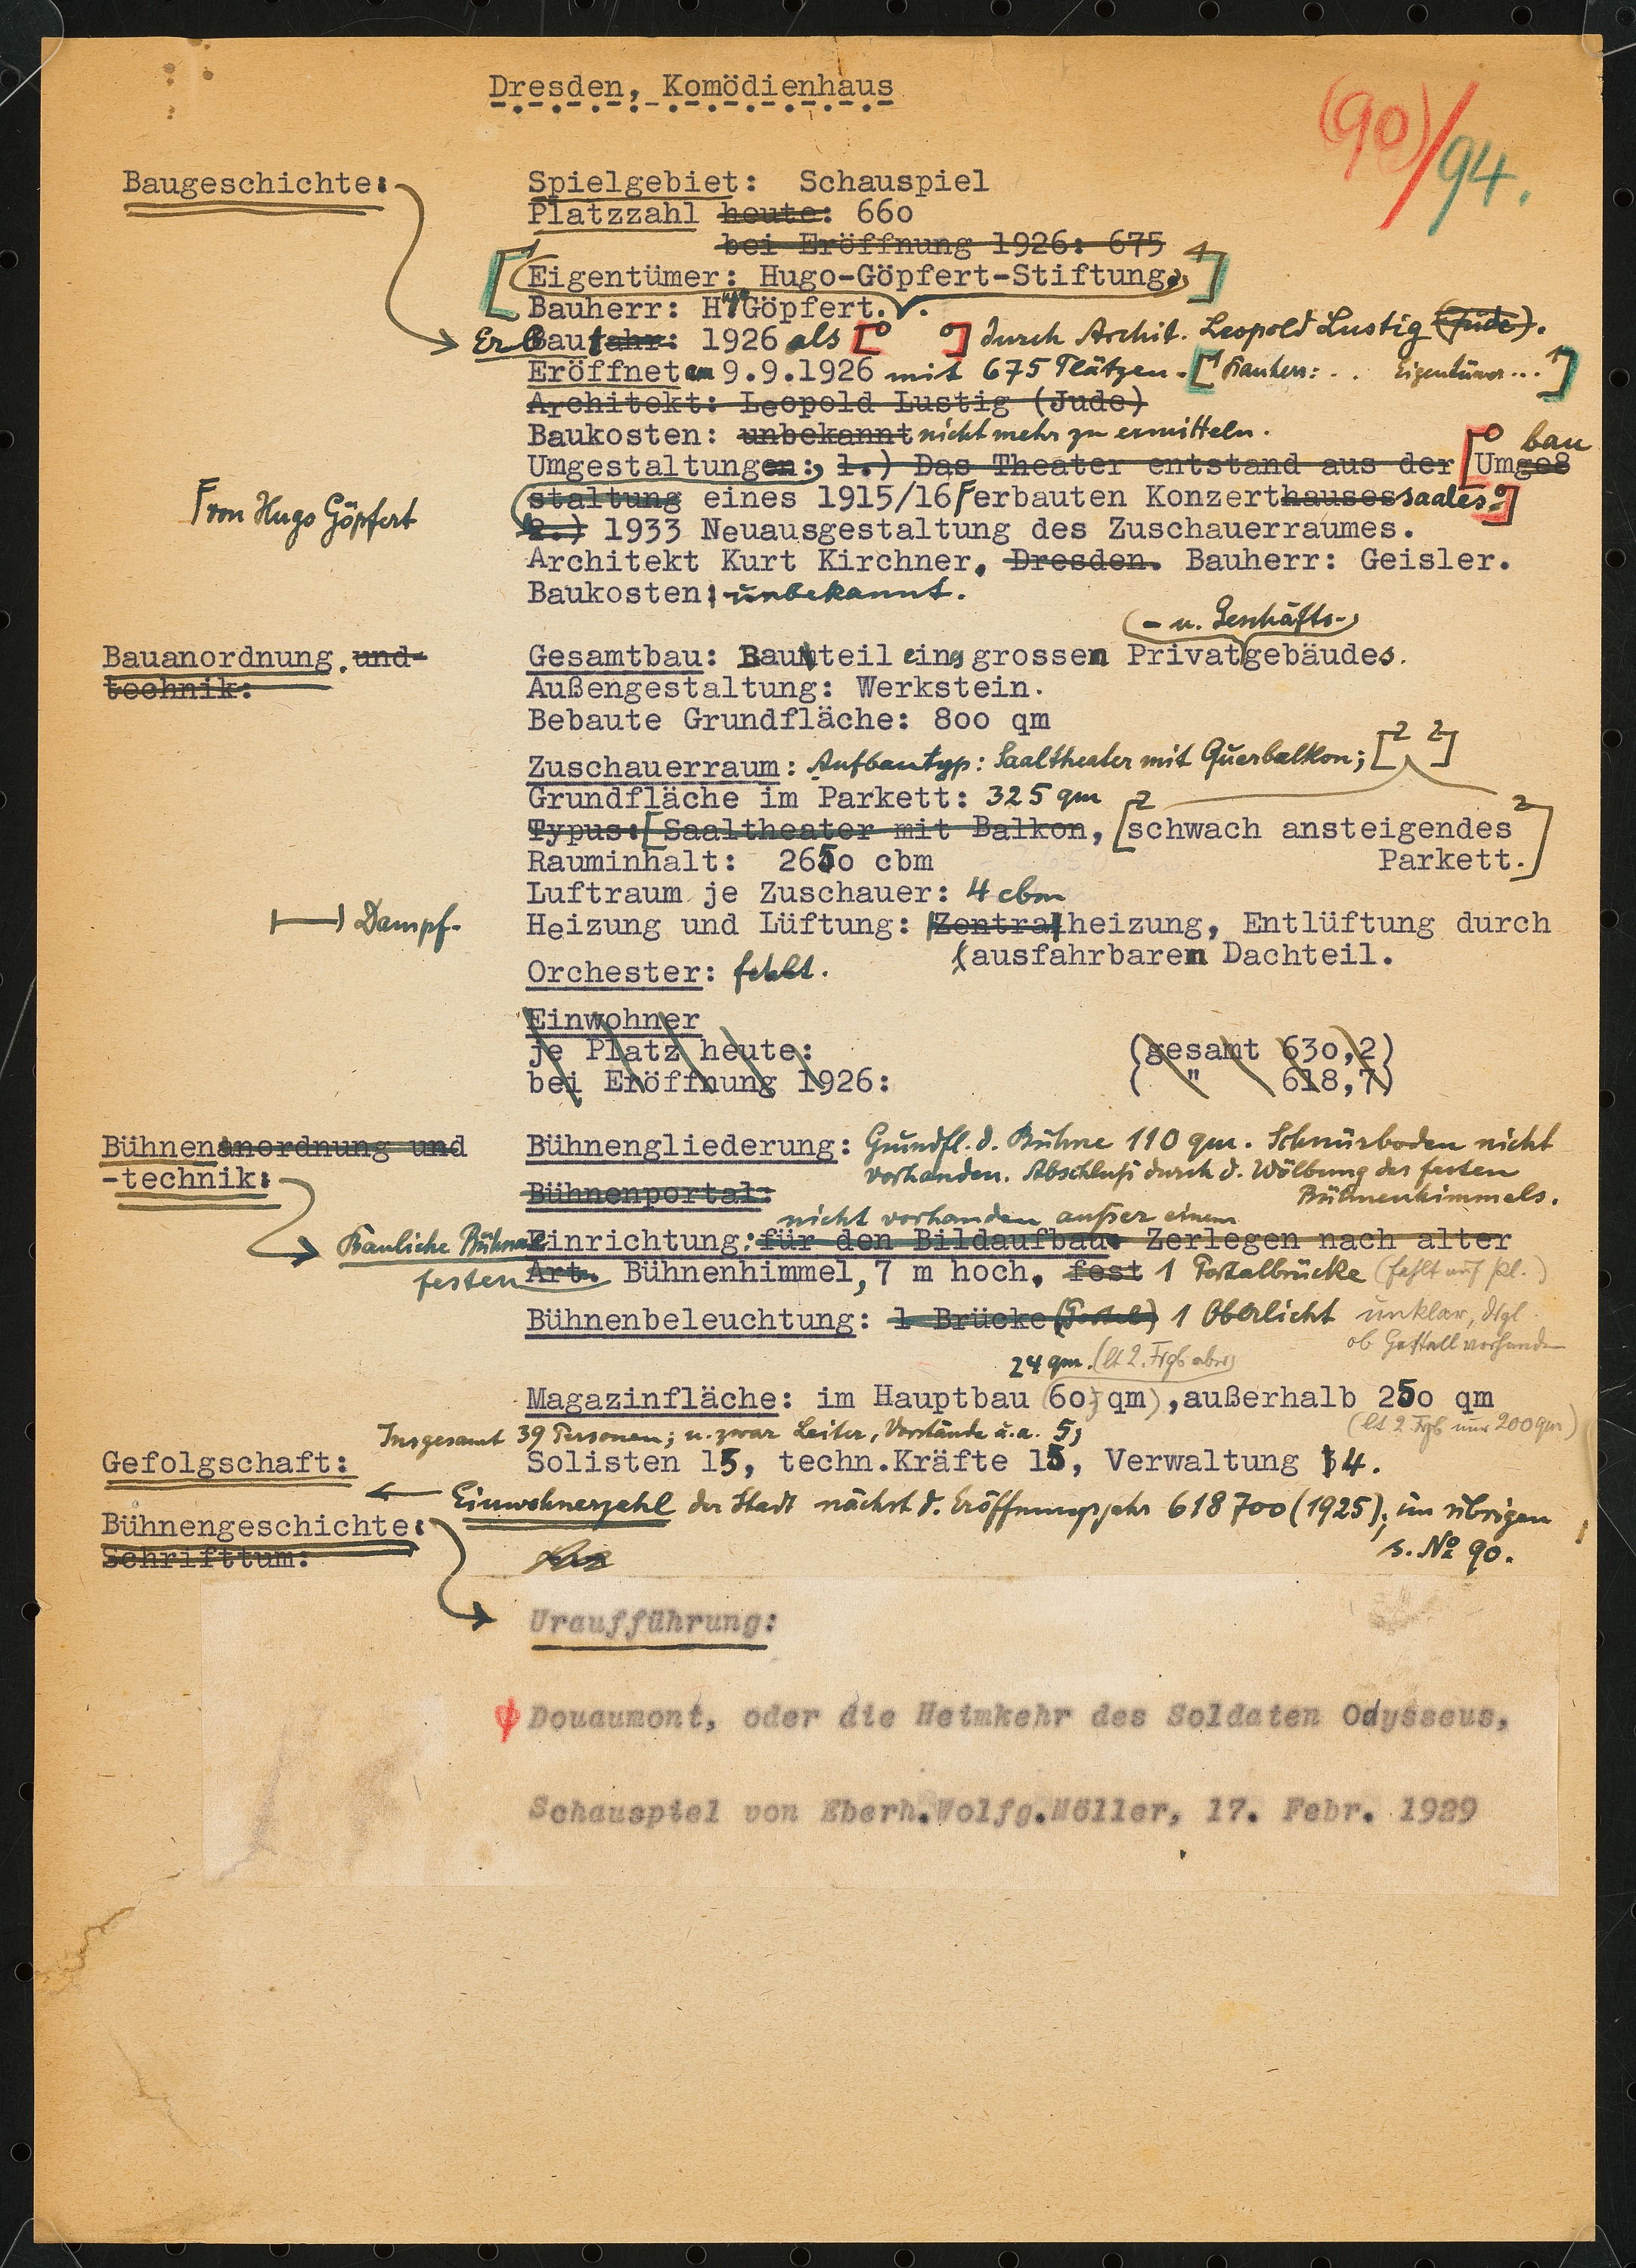 Dresden, Komödienhaus
(90)/94.
Baugeschichte:
Spielgebiet: Schauspiel
Platzzahl heute: 660
bei Eröffnung 1926: 675
[Eigentümer: Hugo-Göpfert-Stiftung.]
Bauherr: Hugo Göpfert.
Erbaut jahr: 1926 als [ ] durch Archit. Leopold Lustig (Jude).
Eröffnet am 9.9.1926 mit 675 Plätzen. [Bauherr: . . Eigentümer ...]
Architekt: Leopold Lustig (Jude)
Baukosten: unbekannt nicht mehr zu ermitteln.
Umgestaltungen: 1.) Das Theater entstand aus der [Umges bau
Γ von Hugo Göpfert
staltung eines 1915/16 Γ erbauten Konzerthauses saales.]
2.) 1933 Neuausgestaltung des Zuschauerraumes.
Architekt Kurt Kirchner, Dresden. Bauherr: Geisler.
Baukosten: unbekannt.
(- u. Geschäfts-)
Bauanordnung. und-
technik:
Gesamtbau: Bauteil eines grossen Privatgebäudes.
Außengestaltung: Werkstein.
Bebaute Grundfläche: 800 qm
Zuschauerraum: Aufbautyp: Saaltheater mit Querbalkon; [2 2]
Grundfläche im Parkett: 325 qm
Typus: [Saaltheater mit Balkon, [schwach ansteigendes
Rauminhalt: 2650 cbm Parkett.]
Luftraum je Zuschauer: 4 cbm
Dampf-
Heizung und Lüftung: Zentralheizung, Entlüftung durch
ausfahrbaren Dachteil.
Orchester: fehlt.
Einwohner
je Platz heute: (gesamt 630,2)
bei Eröffnung 1926: ( " 618,7)
Bühnenanordnung und
-technik:
Bühnengliederung: Grundfl. d. Bühne 110 qm. Schnürboden nicht
vorhanden. Abschluß durch d. Wölbung des festen
Bühnenhimmels.
Bühnenportal:
nicht vorhanden außer einem
Bauliche Bühnen
Einrichtung: für den Bildaufbau: Zerlegen nach alter
festen Art. Bühnenhimmel, 7 m hoch, fest 1 Portalbrücke (fehlt auf Pl.)
Bühnenbeleuchtung: 1 Brücke (Portal) 1 Oberlicht unklar, dsgl.
ob Gestell vorhanden
24 qm. (lt 2. Frgb aber)
Magazinfläche: im Hauptbau (60 qm), außerhalb 250 qm
(lt 2. Frgb nur 200 qm)
Insgesamt 39 Personen; u. zwar Leiter, Vorstände u.a. 5;
Gefolgschaft:
Solisten 15, techn.Kräfte 15, Verwaltung 4.
Einwohnerzahl der Stadt nächst d. Eröffnungsjahr 618 700 (1925); im übrigen
s. No 90.
Bühnengeschichte:
Schrifttum:
Uraufführung:
Douaumont, oder die Heimkehr des Soldaten Odysseus,
Schauspiel von Eberh.Wolfg.Möller, 17. Febr. 1929